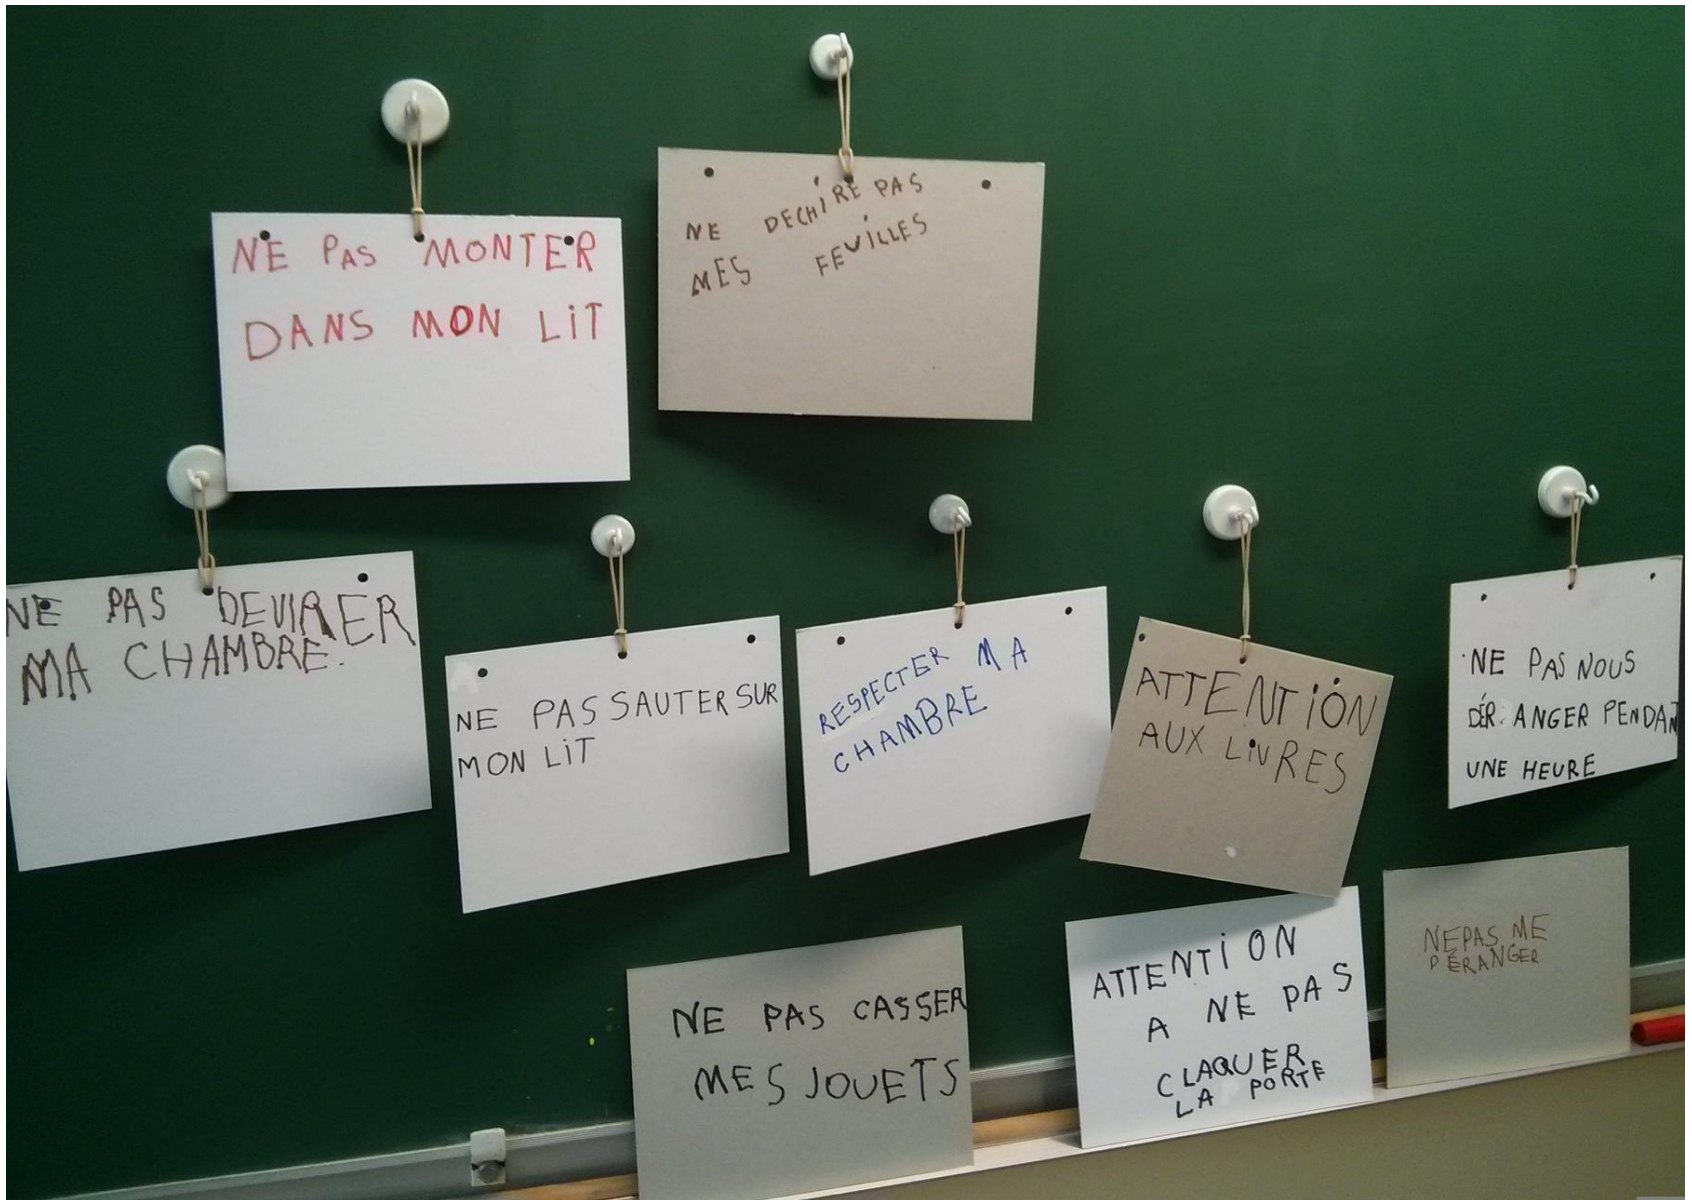 NE PAS MONTER
DANS MON LIT
NE DECHIRE PAS
MES FEUILLES
NE PAS DEVIRER
MA CHAMBRE.
NE PAS SAUTER SUR
MON LIT
RESPECTER MA
CHAMBRE
ATTENTION
AUX LIVRES
NE PAS NOUS
DÉRANGER PENDANT
UNE HEURE
NE PAS CASSER
MES JOUETS
ATTENTION
A NE PAS
CLAQUER
LA PORTE
NE PAS ME
DÉRANGER